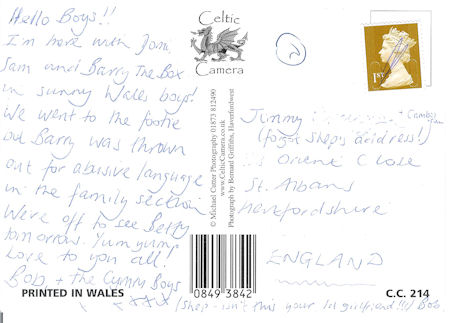 Hello Boys!!
I'm here with Jom,
Sam and Barry The Box
in sunny Wales boys!
We went to the footie
but Barry was thrown
out for abusive language
in the family section
We're off to see Betty
tomorrow. Yum yum!
Love to you all!
Bob + the Cymry Boys
xxx (Shep - isn't this your 1st girlfriend!!!) Bob
PRINTED IN WALES
Celtic
Camera
© Michael Cutter Photography 01873 812490
www.CelticCamera.co.uk
Photograph by Bernard Griffiths, Haverfordwest
0849 3842
1ST
Jimmy
(forgot Shep's address!)
Orient Close
St. Albans
Hertfordshire
ENGLAND
C.C. 214